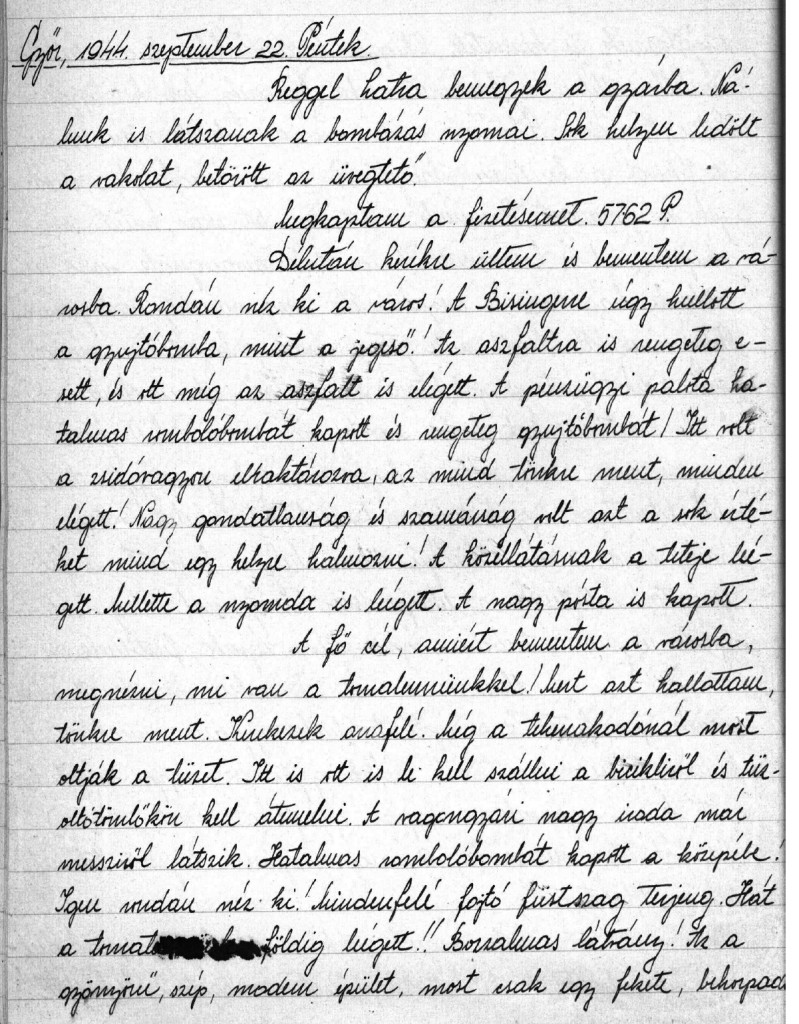 Győr, 1944. szeptember 22. Péntek.
Reggel hatra bemegyek a gyárba. Ná-
lunk is látszanak a bombázás nyomai. Sok helyen ledőlt
a vakolat, betörött az üvegtető.
Megkaptam a fizetésemet. 5762 P.
Délután kerékre ültem és bementem a vá-
rosba. Rondán néz ki a város! A Bisingene úgy hullott
a gyujtóbomba, mint a jegeső! Az aszfaltra is rengeteg e-
sett, és ott még az aszfalt is elégett. A pénzügyi palota ha-
talmas rombolóbombát kapott és rengeteg gyujtóbombát! Itt volt
a zsidóvagyon elraktározva, az mind tönkre ment, minden
elégett! Nagy gondatlanság és szamárság volt azt a sok érté-
ket mind egy helyre halmozni! A közellátásnak a teteje leé-
gett. Mellette a nyomda is leégett. A nagy pósta is kapott.
A fő cél, amiért bementem a városba,
megnézni, mi van a tornatermünkkel! Mert azt hallottam,
tönkre ment. Kerekezek arrafelé. Még a teherrakodónál most
oltják a tüzet. Itt is ott is le kell szállni a bicikliről és tűz-
oltótömlőkön kell átemelni. A vagongyári nagy iroda már
messziről látszik. Hatalmas rombolóbombát kapott a közepébe!
Igen rondán néz ki! Mindenfelé fojtó füstszag terjeng. Hát
a tornat földig leégett!! Borzalmas látvány! Az a
gyönyörű, szép, modern épület, most csak egy fekete, behorpad